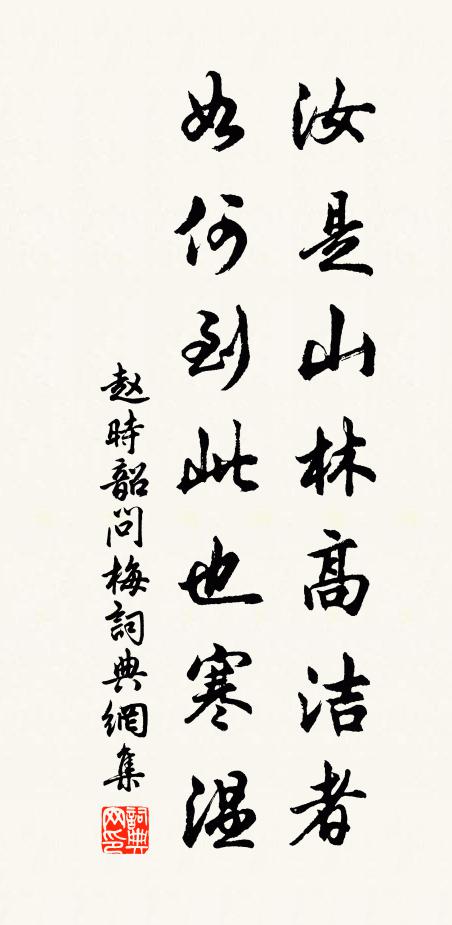 汝是山林高洁者
如何到此也寒温
赵时韶问梅词典網集
詞典网印